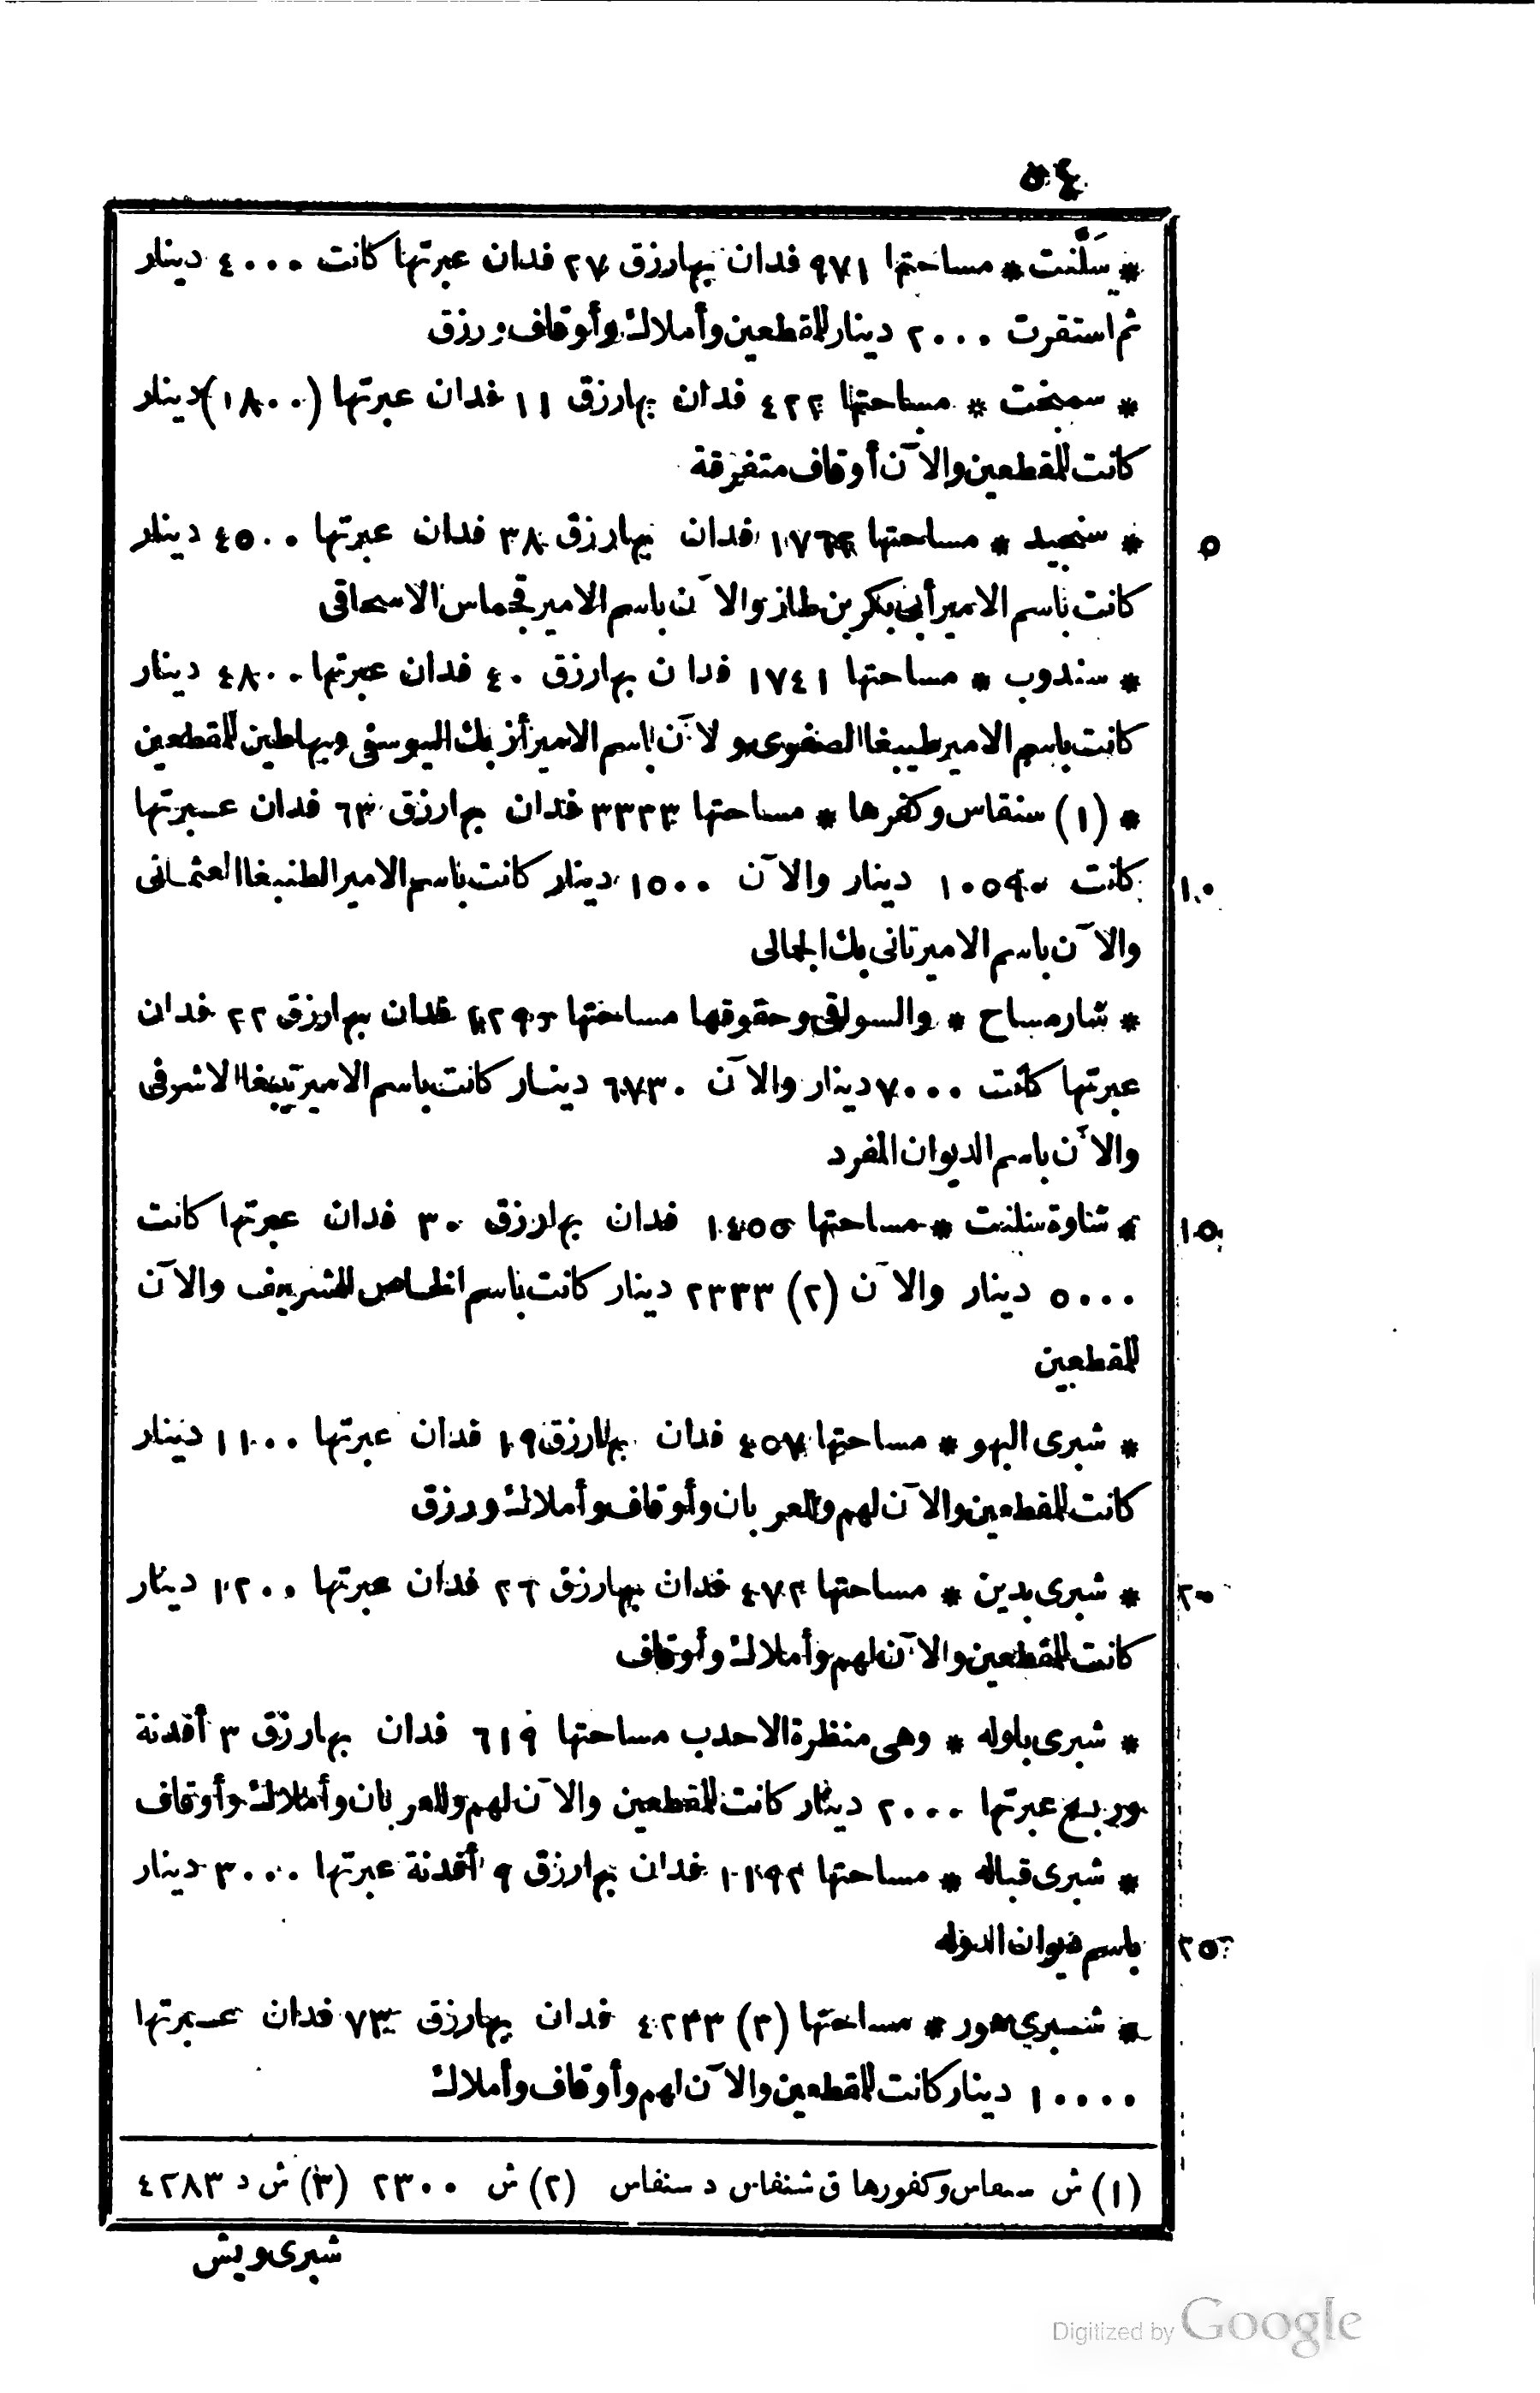 ٥٤
* سَلَّنت * مساحتها ٩٧١ فدان بها رزق ٢٧ فدان عبرتها كانت ٤٠٠٠ دينار
ثم استقرت ٢٠٠٠ دينار للمقطعين وأملاك وأوقاف ورزق
* سمنخت * مساحتها ٤٢٢ فدان بها رزق ١١ فدان عبرتها (١٨٠٠) دينار
كانت للمقطعين والآن أوقاف متفرقة
٥ * سنجيد * مساحتها فدان بها رزق ٣٨ فدان عبرتها ٤٥٠٠ دينار
كانت باسم الامير أبى بكر بن طاز والآن باسم الامير قجماس الاسحاقى
* سندوب * مساحتها ١٧٤١ فدان بها رزق ٤٠ فدان عبرتها ٤٨٠٠ دينار
كانت باسم الامير طيبغا الصفوى والآن باسم الامير أزبك اليوسفى وبها طين للمقطعين
* (١) سنقاس وكفرها * مساحتها ٣٣٣٣ فدان بها رزق ٦٣ فدان عبرتها
١٠ كانت ١٠٥٩٠ دينار والآن ١٥٠٠ دينار كانت باسم الامير الطنبغا العثمانى
والآن باسم الامير تانى بك الجالى
* شارمساح * والسواقى وحقوقها مساحتها فدان بها رزق ٢٢ فدان
عبرتها كانت ٧٠٠٠ دينار والآن ٦٧٣٠ دينار كانت باسم الامير تيبغا الاشرفى
والآن باسم الديوان المفرد
١٥ * شناوة سلنت * مساحتها ١٤٥٥ فدان بها رزق ٣٠ فدان عبرتها كانت
٥٠٠٠ دينار والآن (٢) ٢٣٣٣ دينار كانت باسم الخاص الشريف والآن
للمقطعين
* شبرى البهو * مساحتها ٤٥٧ فدان بها رزق ١٩ فدان عبرتها ١١٠٠ دينار
كانت للمقطعين والآن لهم وللعربان وأوقاف وأملاك ورزق
٢٠ * شبرى بدين * مساحتها ٤٧٢ فدان بها رزق ٢٦ فدان عبرتها ١٢٠٠ دينار
كانت للمقطعين والآن لهم وأملاك وأوقاف
* شبرى بلوله * وهى منظرة الاحدب مساحتها ٦١٩ فدان بها رزق ٣ أفدنة
وربع عبرتها ٢٠٠٠ دينار كانت للمقطعين والآن لهم وللعربان وأملاك وأوقاف
* شبرى قباله * مساحتها ١١٩٢ فدان بها رزق ٩ أفدنة عبرتها ٣٠٠٠ دينار
٢٥ باسم ديوان الدوله
* شبرى هور * مساحتها (٣) ٤٢٣٣ فدان بها رزق ٧٣ فدان عبرتها
١٠٠٠٠ دينار كانت للمقطعين والآن لهم وأوقاف وأملاك
(١) ش وكفورها ق شنفاس د سنفاس (٢) ش ٢٣٠٠ (٣) ش د ٤٢٨٣
شبرى ويش
Digitized by Google